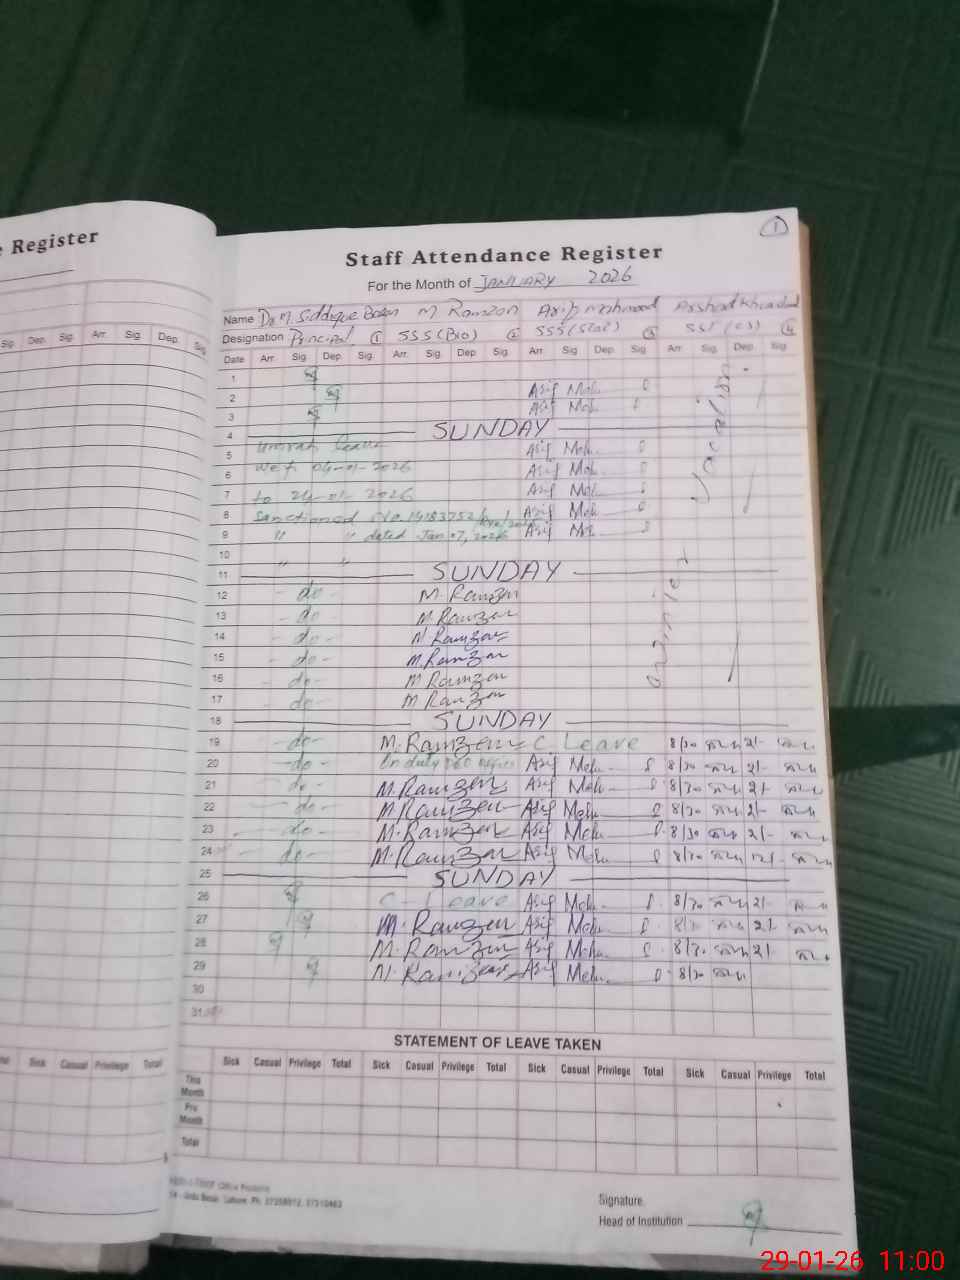 e Register
Sig. Dep. Sig. Arr. Sig Dep. Sig
Sick Casual Privilege Total
1
Staff Attendance Register
For the Month of JANUARY 2026
Name Dr M. Siddique M Ramzan Arif mahmood Arshad
Designation Principal 1 SSS (Bio) 2 SSS (Stat) 3 SST (CS) 4
Date Arr. Sig Dep. Sig. Arr. Sig. Dep. Sig Arr. Sig Dep. Sig Arr. Sig. Dep. Sig
1
2 Asif Meh
3 Asif Meh
4 SUNDAY
5 Umrah leave Asif Meh
6 wef 04-01-2026 Asif Meh
7 to 24-01-2026 Asif Meh
8 Sanctioned No. Asif Meh
9 " " dated Jan 07, 2026 Asif Meh
10 " "
11 SUNDAY
12 -do- M. Ramzan
13 -do- M. Ramzan
14 -do- M. Ramzan
15 -do- M. Ramzan
16 -do- M Ramzan
17 -do- M Ramzan
winter Vacation
18 SUNDAY
19 -do- M. Ramzan C. Leave 8/30 2/-
20 -do- On duty Asif Meh 8/30 2/-
21 -do- M. Ramzan Asif Meh 8/30 2/-
22 -do- M. Ramzan Asif Meh 8/30 2/-
23 -do- M. Ramzan Asif Meh 8/30 2/-
24 -do- M. Ramzan Asif Meh 8/30 12/-
25 SUNDAY
26 C-Leave Asif Meh 8/30 2/-
27 M. Ramzan Asif Meh 8/30 2/-
28 M. Ramzan Asif Meh 8/30 2/-
29 M. Ramzan Asif Meh 8/30
30
31
STATEMENT OF LEAVE TAKEN
Sick Casual Privilege Total Sick Casual Privilege Total Sick Casual Privilege Total Sick Casual Privilege Total
This Month
Pre Month
Total
Urdu Bazar, Lahore. Ph.
Signature
Head of Institution
29-01-26 11:00